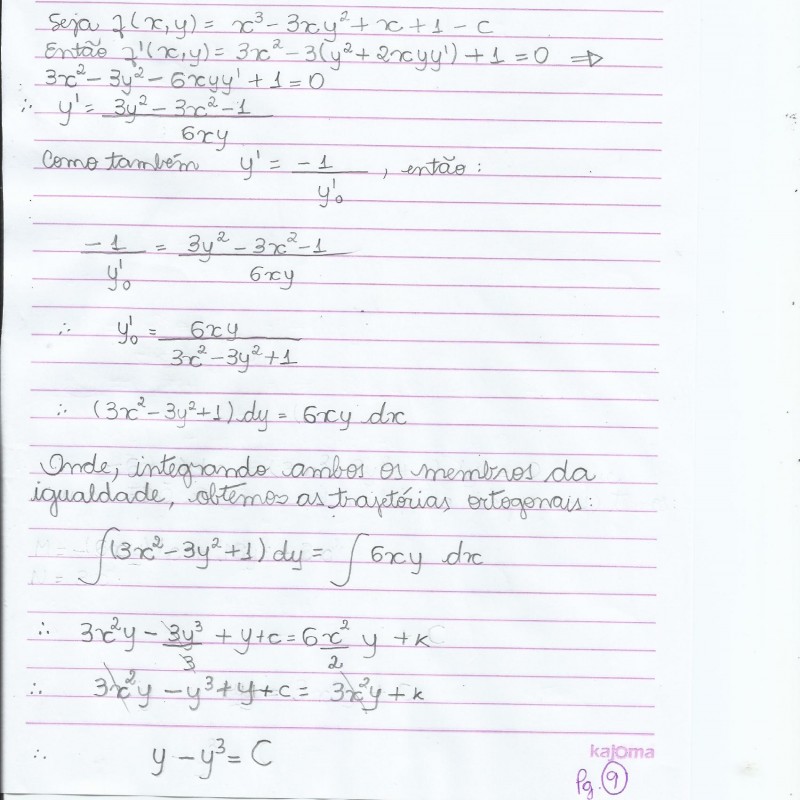 Seja f(x,y) = x³ - 3xy² + x + 1 - c
Então f'(x,y) = 3x² - 3(y² + 2xyy') + 1 = 0 ⇒
3x² - 3y² - 6xyy' + 1 = 0
∴ y' = (3y² - 3x² - 1)/(6xy)
Como também y' = -1/y'₀, então:
-1/y'₀ = (3y² - 3x² - 1)/(6xy)
∴ y'₀ = 6xy/(3x² - 3y² + 1)
∴ (3x² - 3y² + 1) dy = 6xy dx
Onde, integrando ambos os membros da
igualdade, obtemos as trajtórias ortogonais:
∫(3x² - 3y² + 1) dy = ∫ 6xy dx
∴ 3x²y - 3y³/3 + y + c = 6x²/2 y + k
∴ 3x²y - y³ + y + c = 3x²y + k
∴ y - y³ = C
kajoma
Pg. 9